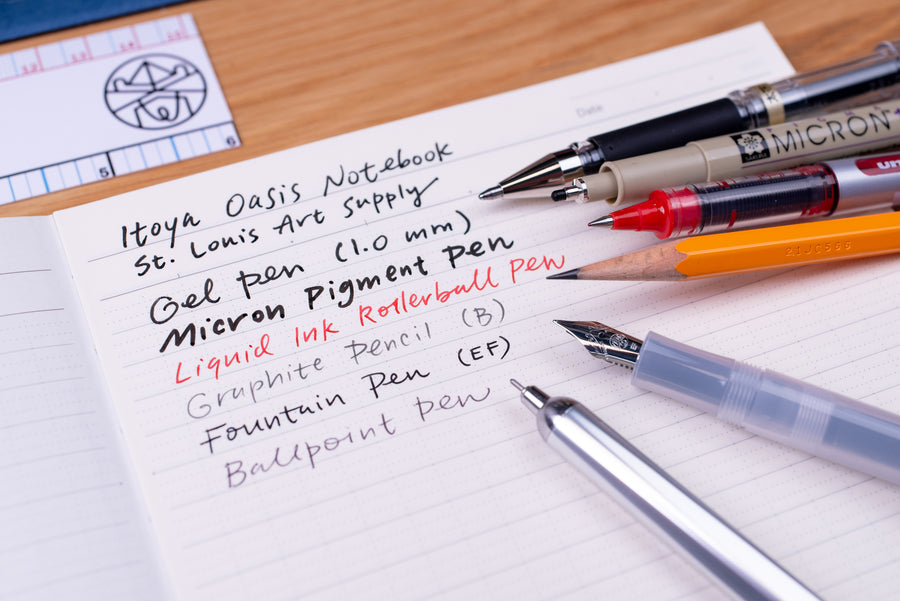 Date
Itoya Oasis Notebook
St. Louis Art Supply
Gel pen (1.0 mm)
Micron Pigment Pen
Liquid Ink Rollerball Pen
Graphite Pencil (B)
Fountain Pen (EF)
Ballpoint pen
MICRON
5 6